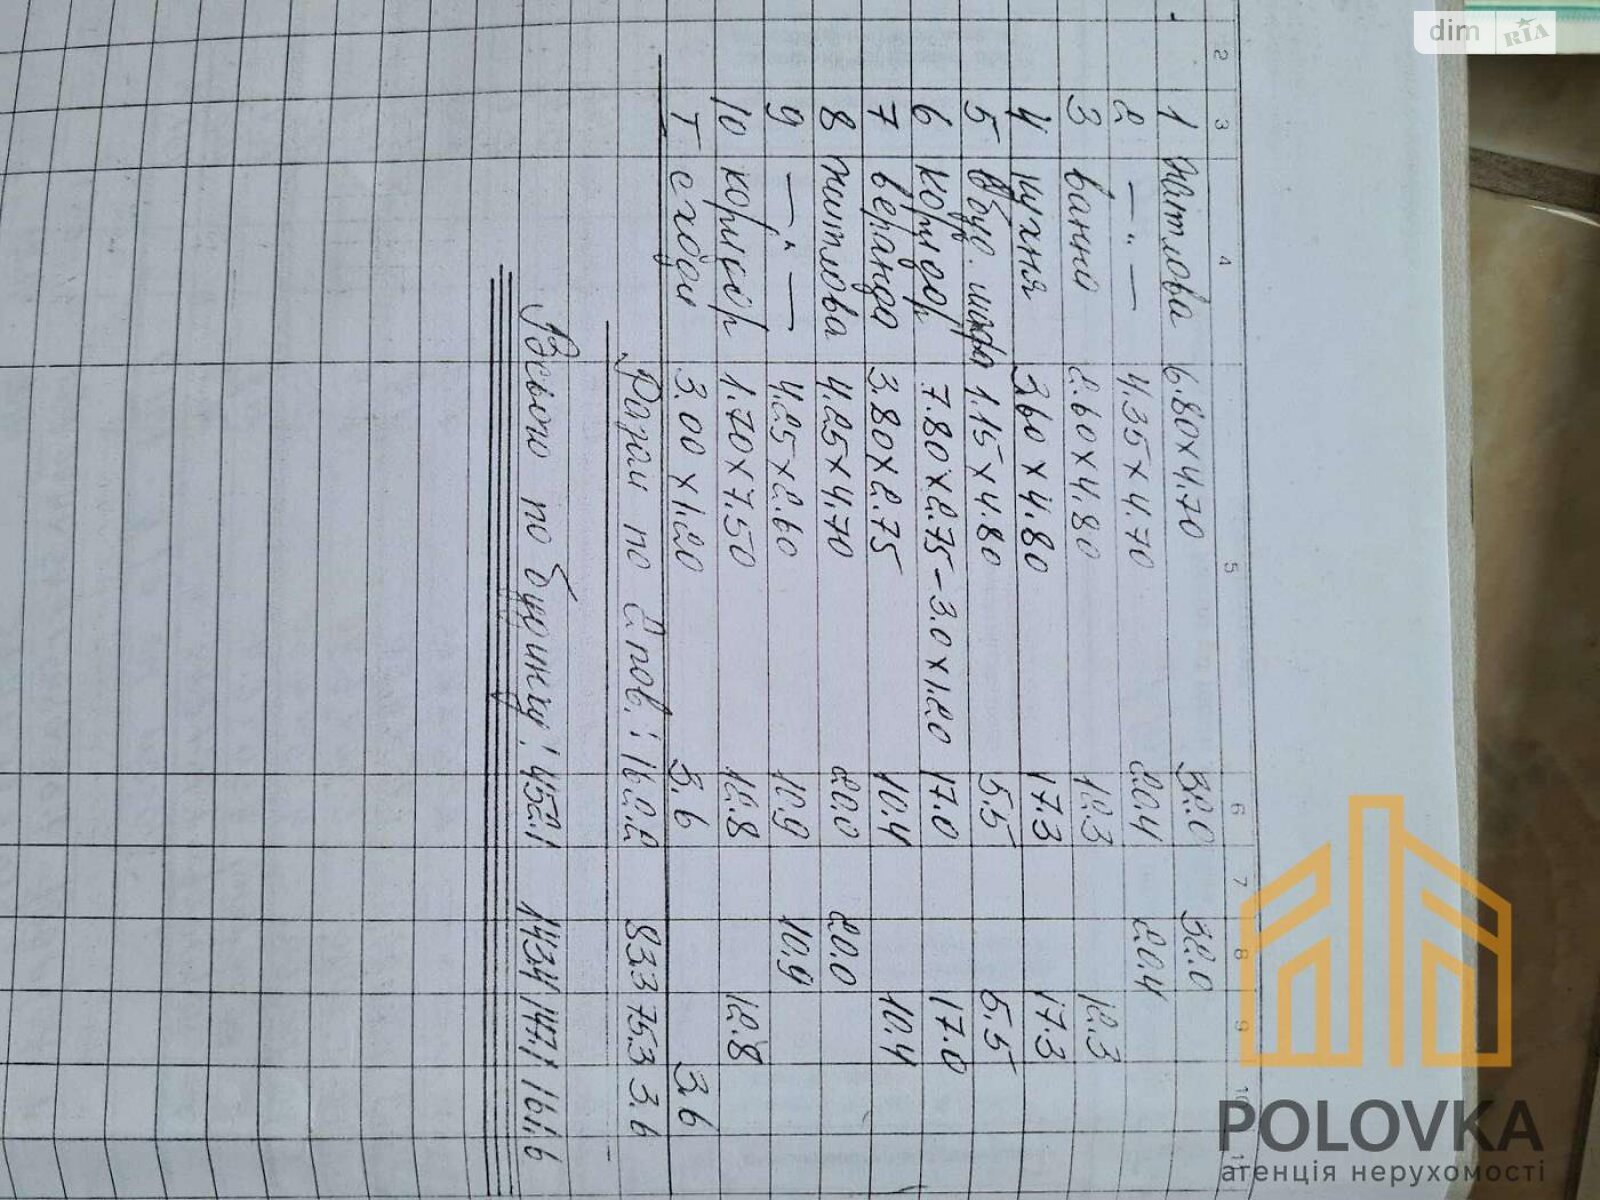 dim RIA
2 3 4 5 6 7 8 9 10 11
1 житлова 6.80х4.70 32.0 32.0
2 —"— 4.35х4.70 20.4 20.4
3 ванна 2.60х4.80 12.3 12.3
4 кухня 3.60х4.80 17.3 17.3
5 вбуд. шафа 1.15х4.80 5.5 5.5
6 коридор 7.80х2.75-3.0х1.20 17.0 17.0
7 веранда 3.80х2.75 10.4 10.4
8 житлова 4.25х4.70 20.0 20.0
9 —"— 4.25х2.60 10.9 10.9
10 коридор 1.70х7.50 12.8 12.8
Т сходи 3.00х1.20 3.6 3.6
Разом по 2 пов.: 162.2 83.3 75.3 3.6
Всього по будинку: 452.1 143.4 147.1 161.6
POLOVKA
агенція нерухомості